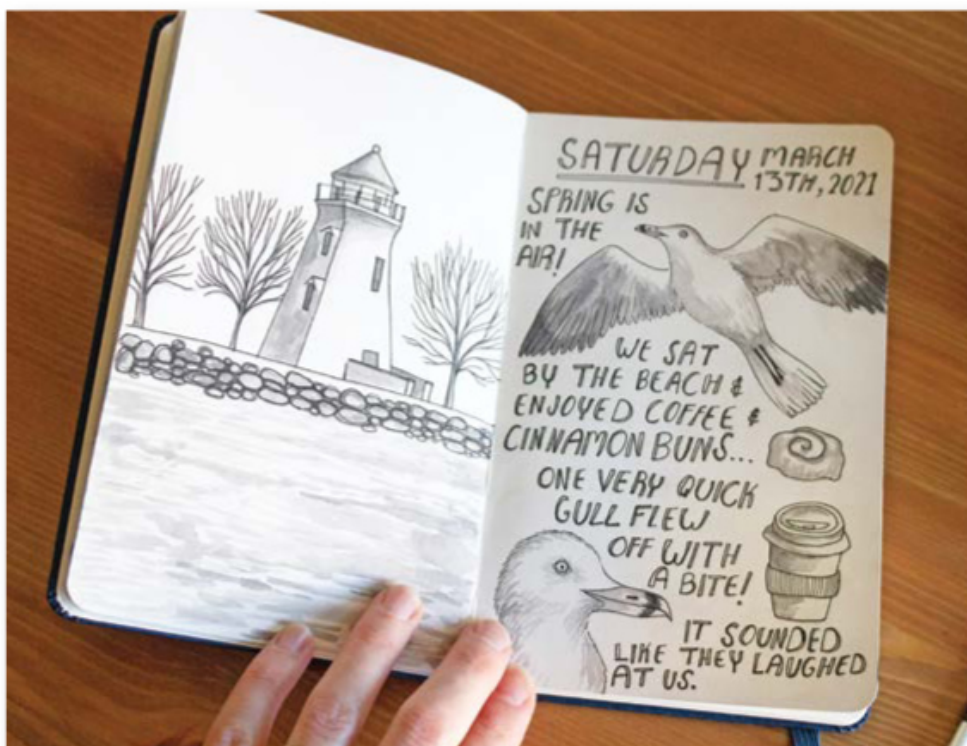 SATURDAY MARCH
13TH, 2021
SPRING IS
IN THE
AIR!
WE SAT
BY THE BEACH &
ENJOYED COFFEE &
CINNAMON BUNS...
ONE VERY QUICK
GULL FLEW
OFF WITH
A BITE!
IT SOUNDED
LIKE THEY LAUGHED
AT US.